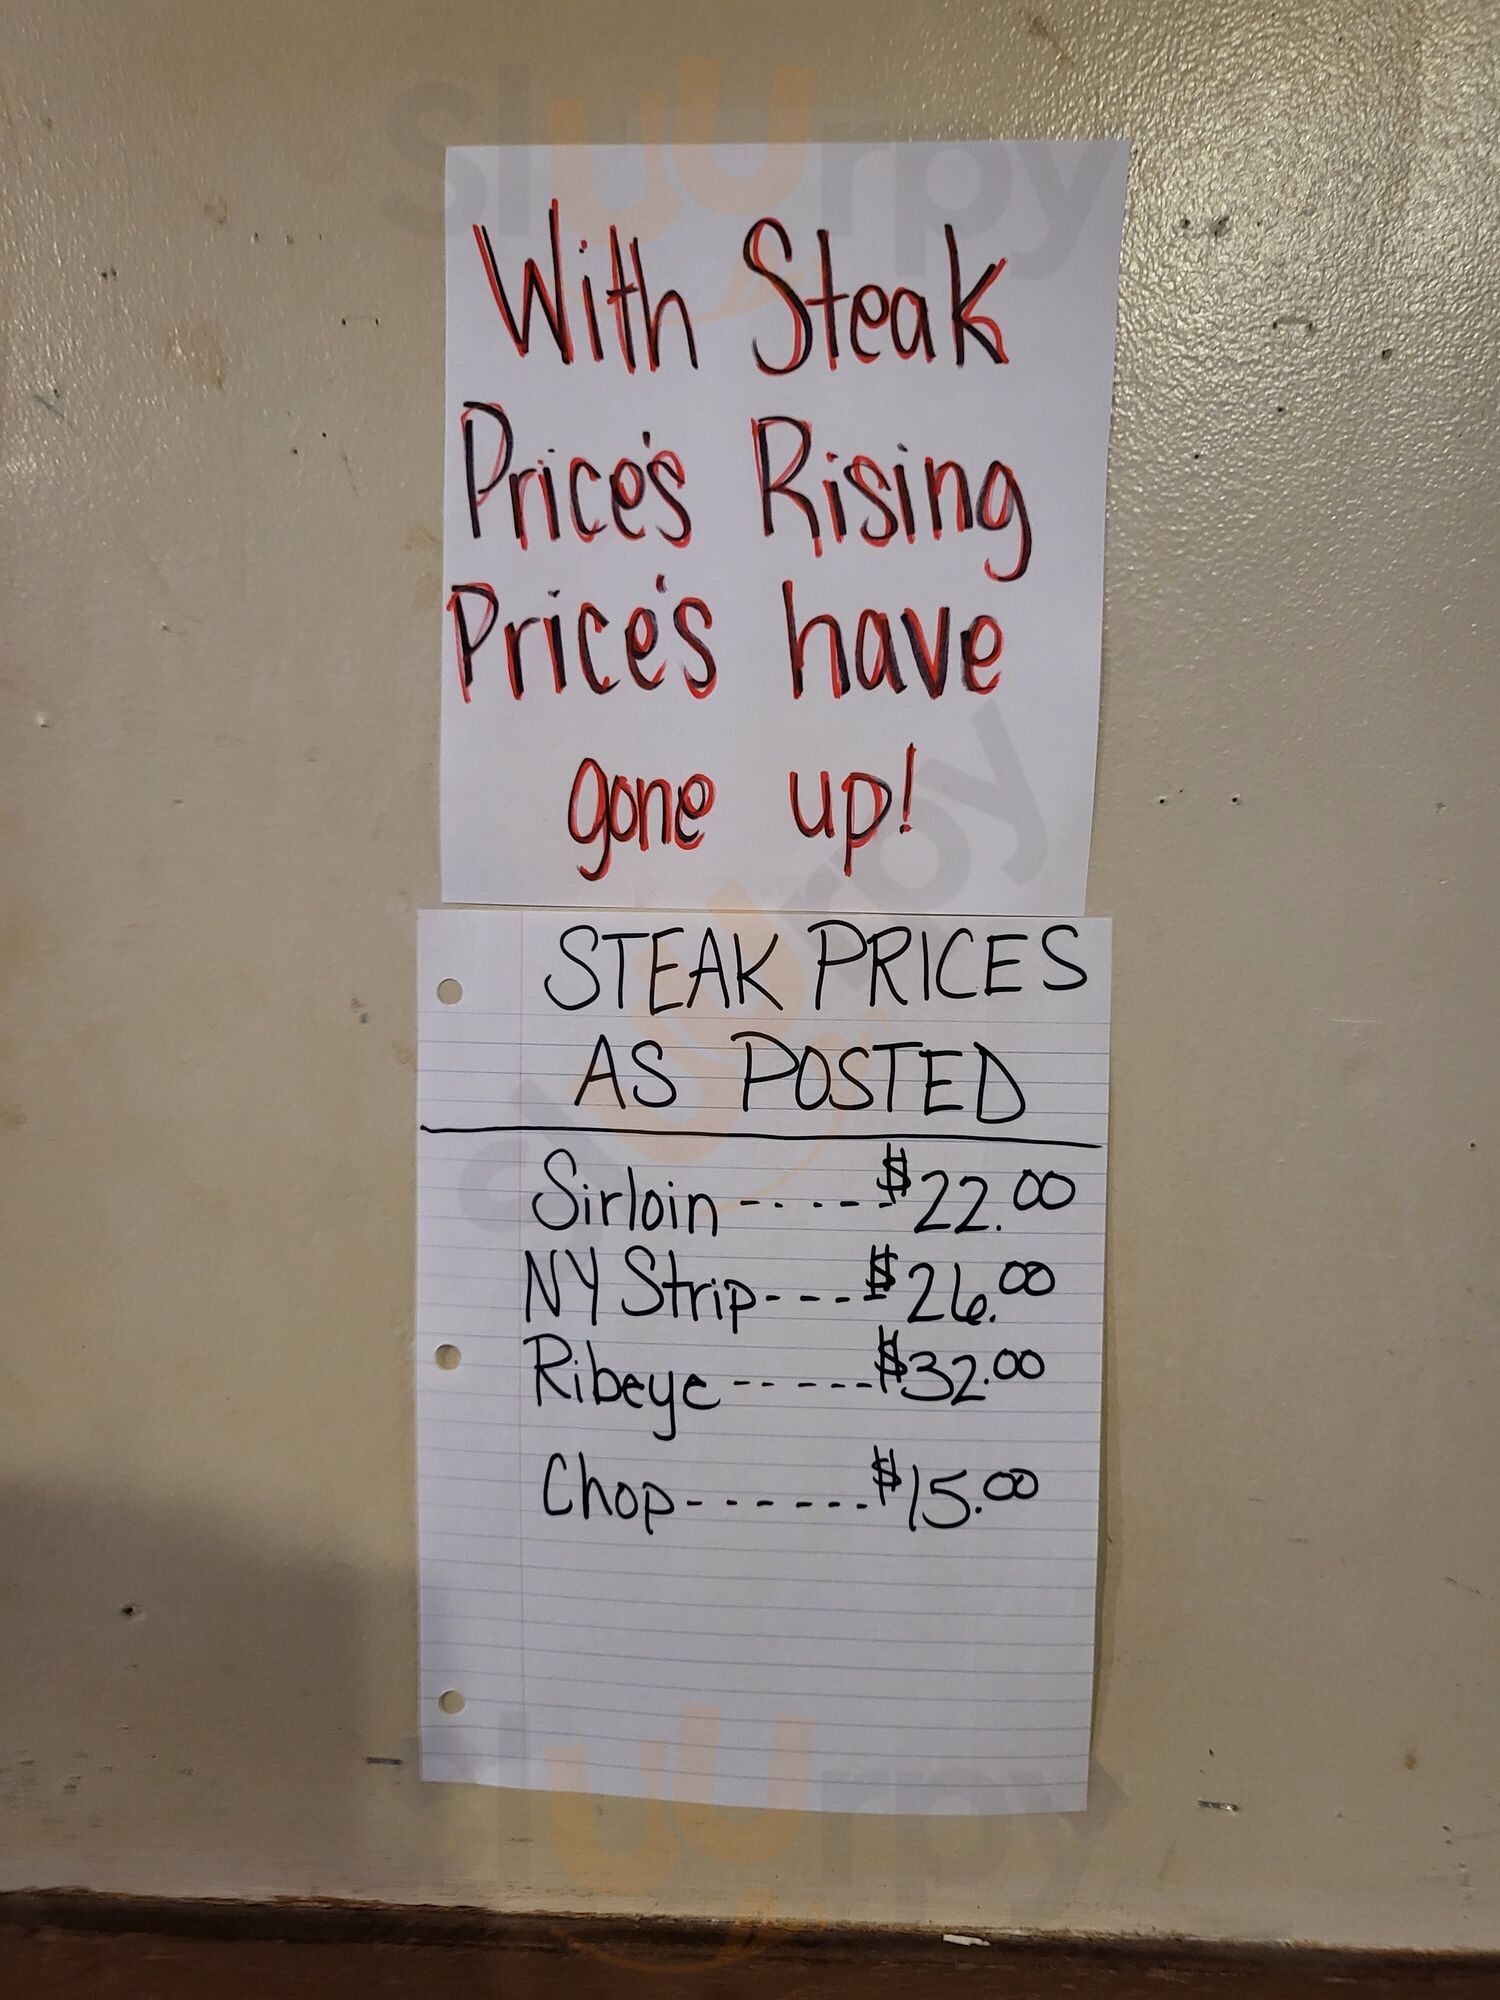 With Steak
Price's Rising
Price's have
gone up!
STEAK PRICES
AS POSTED
Sirloin - - - - - $22.00
NY Strip - - - - $26.00
Ribeye - - - - - $32.00
Chop - - - - - - - $15.00
Sluurpy
Sluurpy
Sluurpy